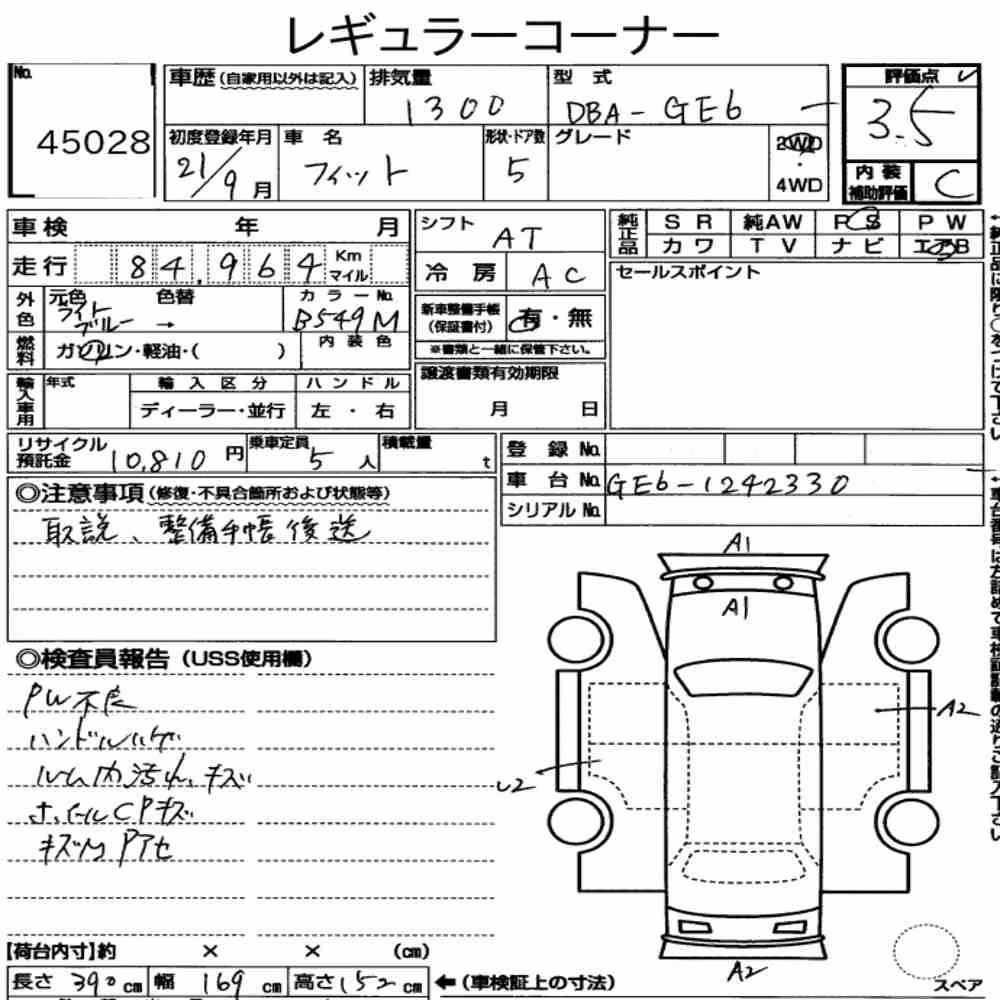 レギュラーコーナー
No. 45028
車歴(自家用以外は記入) 排気量 1300 型式 DBA-GE6 評価点 3.5
初度登録年月 21/9月 車名 フィット 形状・ドア数 5 グレード 2WD・4WD 内装補助評価 C
車検 年 月
走行 84,964 Km マイル
外色 元色 ライトブルー 色替 → カラーNo. B549M
燃料 ガソリン・軽油・( ) 内装色
輸入車用 年式 輸入区分 ディーラー・並行 ハンドル 左・右
シフト AT
冷房 AC
新車整備手帳(保証書付) 有・無
※書類と一緒に保管下さい。
譲渡書類有効期限
月 日
純正品 SR 純AW PS PW
カワ TV ナビ エアB
セールスポイント
リサイクル預託金 10,810円 乗車定員 5人 積載量 t
登録No.
車台No. GE6-1242330
シリアルNo.
◎注意事項(修復・不具合箇所および状態等)
取説、整備手帳後送
◎検査員報告(USS使用欄)
PW不良
ハンドルハゲ
ルーム内汚れ、キズ
ホイールCPキズ
A1
A1
A2
A2
【荷台内寸】約 × × (cm)
長さ 390cm 幅 169cm 高さ 152cm ←(車検証上の寸法)
スペア